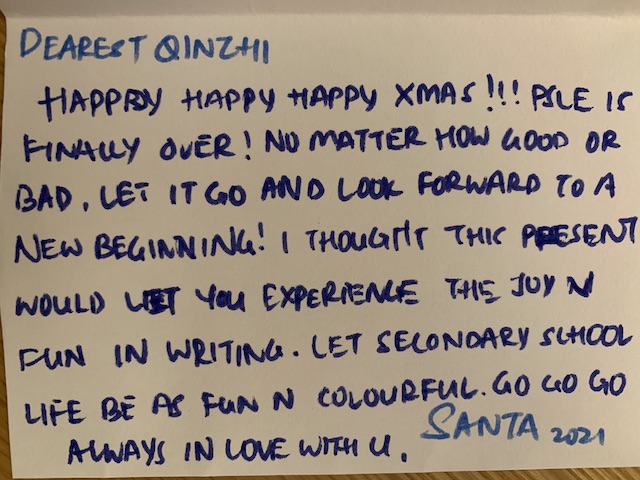 DEAREST QINZHI
HAPPPY HAPPY HAPPY XMAS!!! PSLE IS
FINALLY OVER! NO MATTER HOW GOOD OR
BAD, LET IT GO AND LOOK FORWARD TO A
NEW BEGINNING! I THOUGHT THIS PRESENT
WOULD LET YOU EXPERIENCE THE JOY N
FUN IN WRITING. LET SECONDARY SCHOOL
LIFE BE AS FUN N COLOURFUL. GO GO GO
ALWAYS IN LOVE WITH U. SANTA 2021